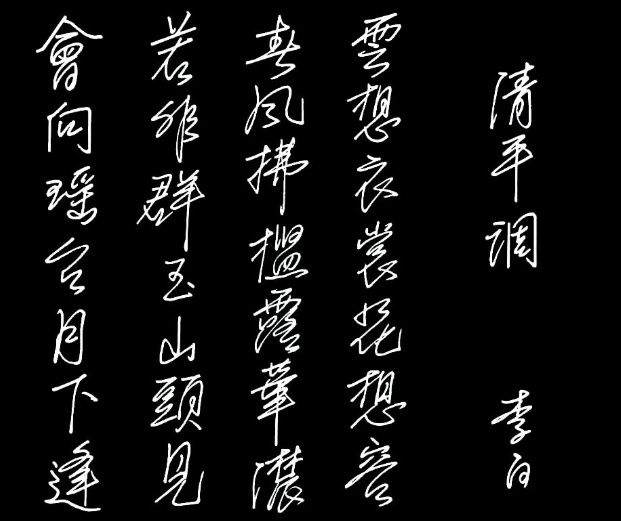 清平调 李白
雲想衣裳花想容
春風拂檻露華濃
若非群玉山頭見
會向瑶台月下逢